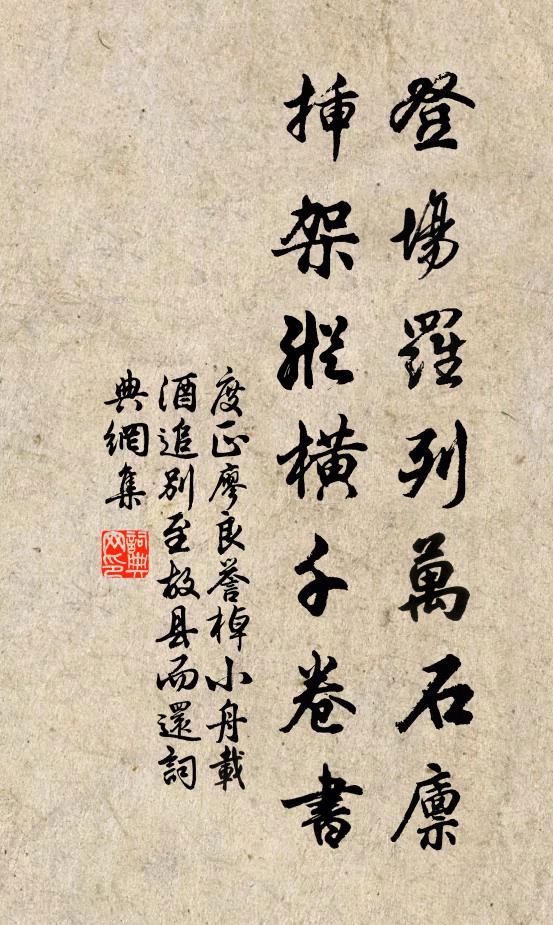 登場羅列萬石廪
挿架縱橫千卷書
度正廖良誉棹小舟載
酒追別至故县而還詞
典網集
詞典网印